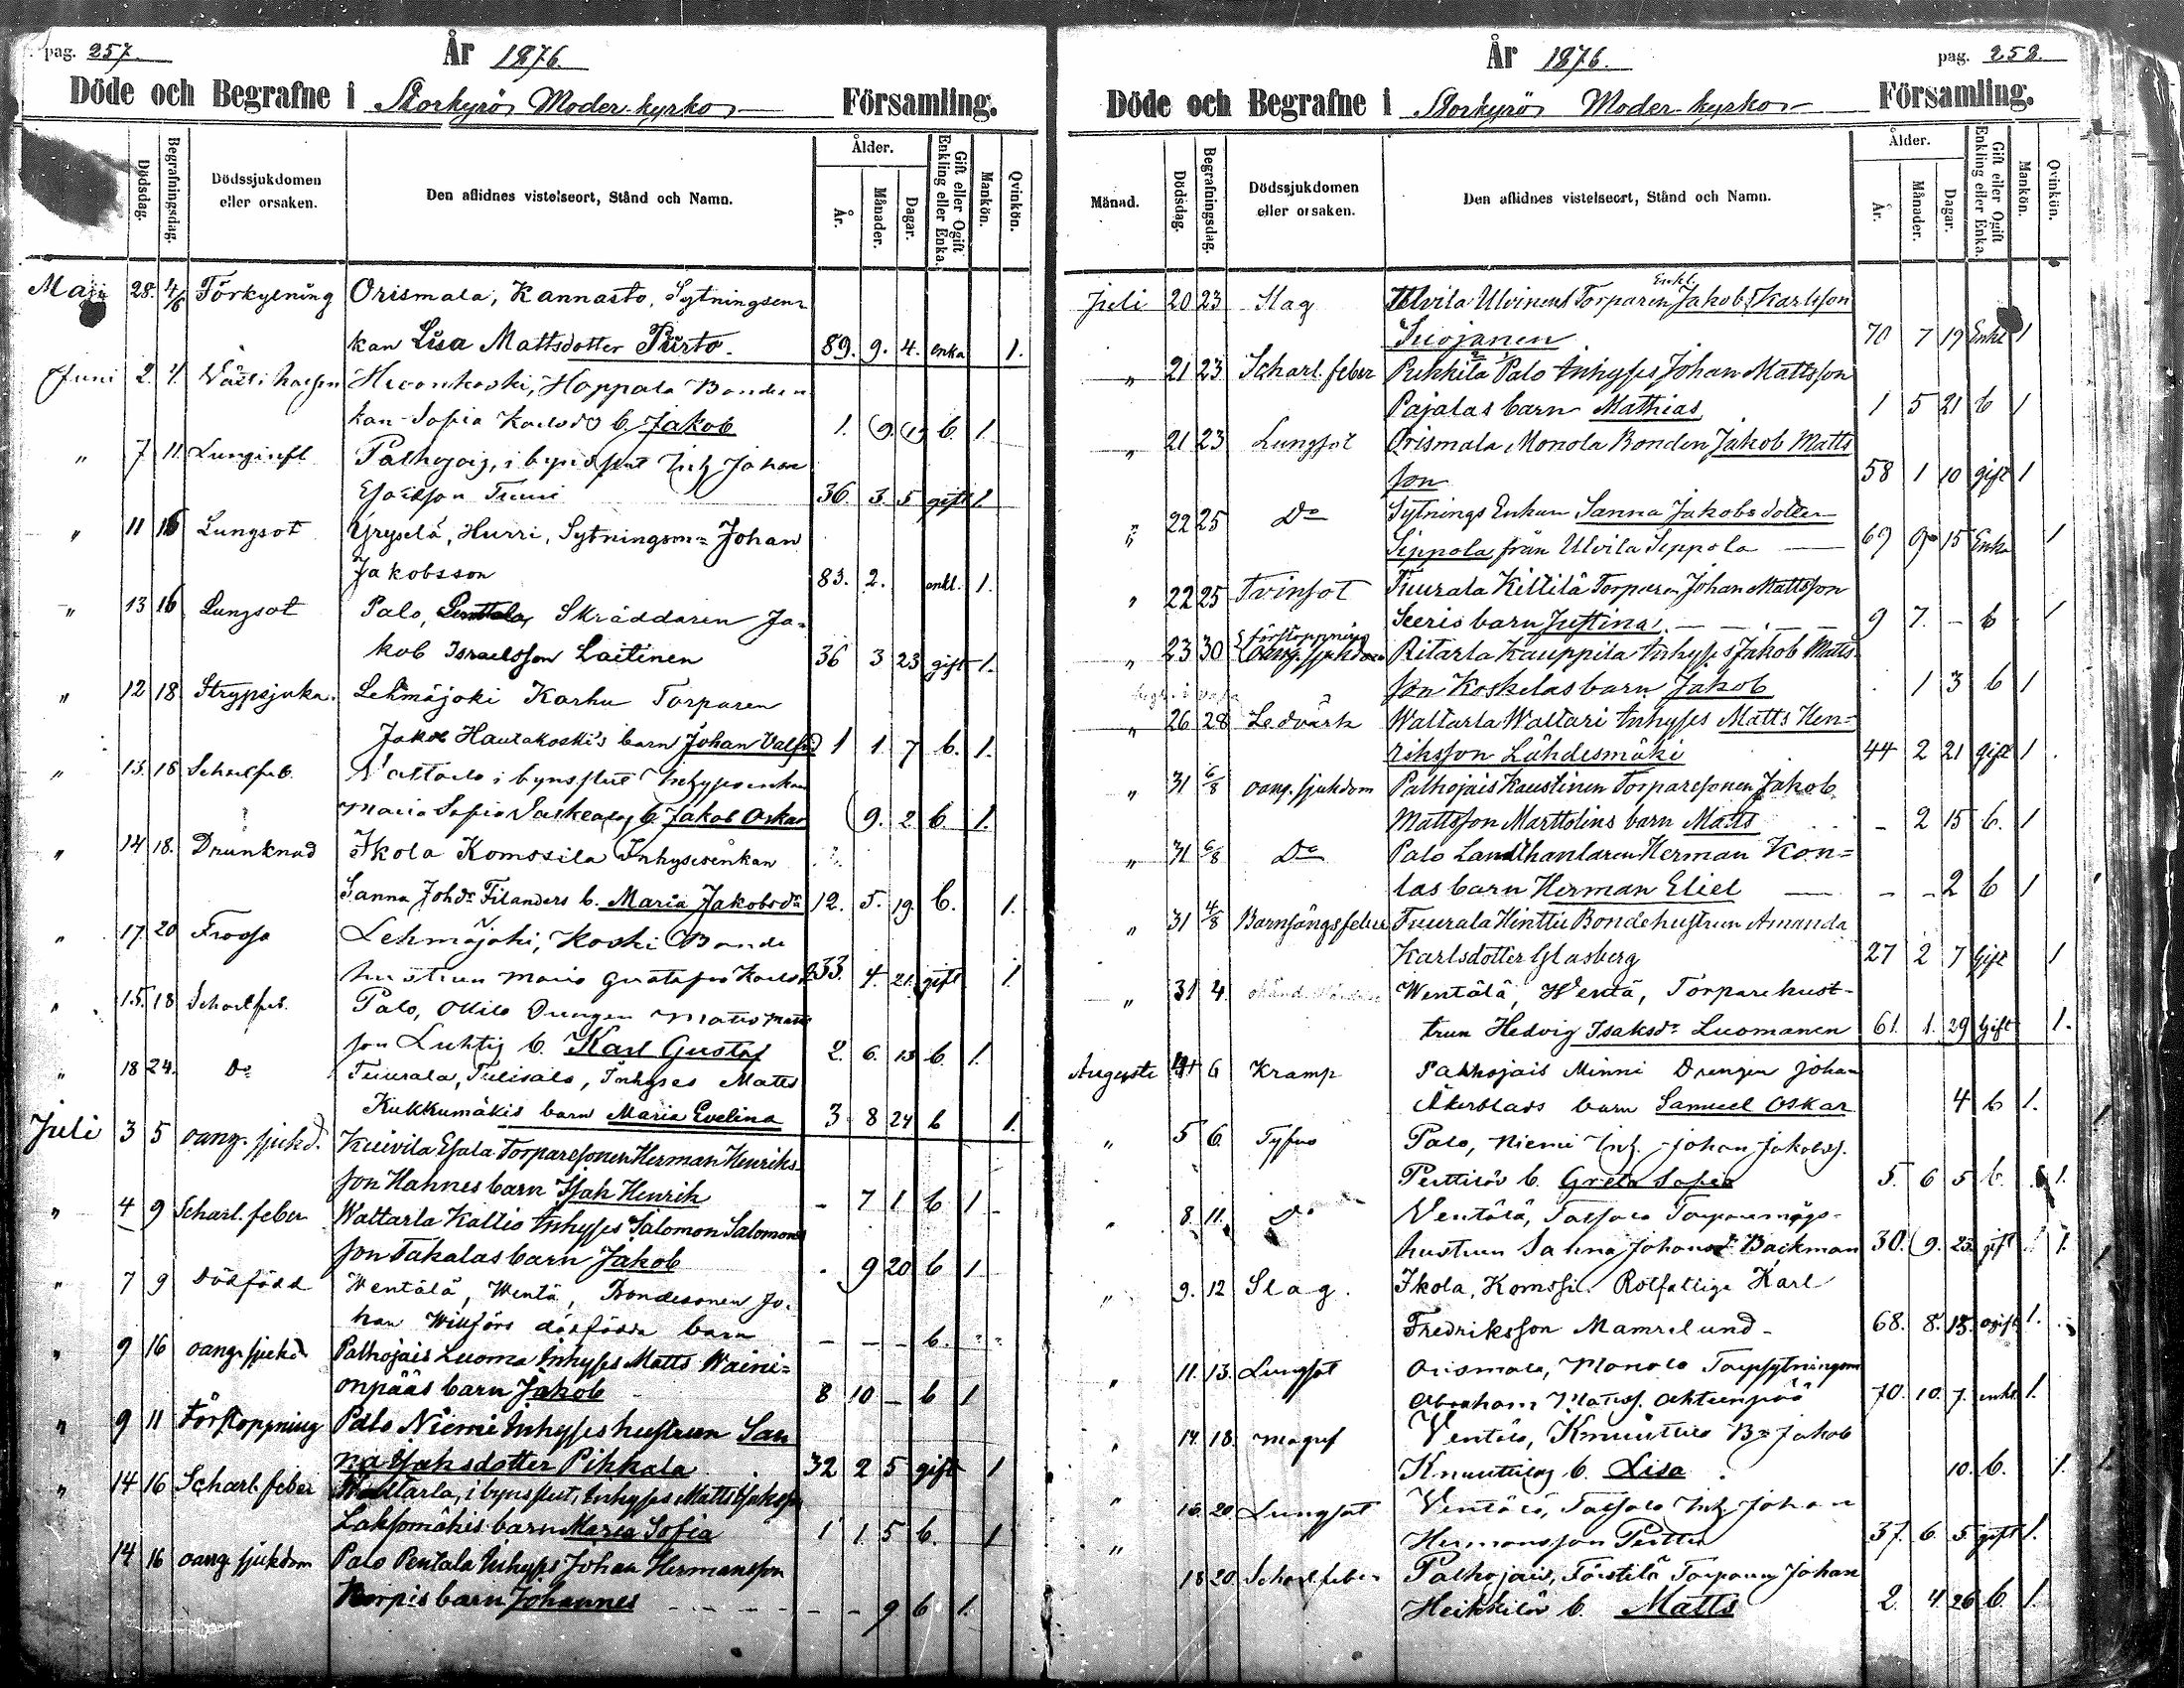 pag. 257.
År 1876.
Döde och Begrafne i Storkyrö Moder-kyrko Församling.
Dödsdag.
Begrafningsdag.
Dödssjukdomen eller orsaken.
Den aflidnes vistelseort, Stånd och Namn.
Ålder.
År.
Månader.
Dagar.
Gift eller Ogift Enkling eller Enka.
Mankön.
Qvinkön.
Maji 28. 4/6 Förkylning Orismala, Kannasto, Sytningsen-
kan Lisa Mattsdotter Pirto. 89. 9. 4. enka 1.
Juni 2. 4. Hoppala Bonden
Sofia b. Jakob 1. 9. b. 1.
" 7 11 Lunginfl
36. 3. 5 gift 1.
" 11 16 Lungsot Yryselä, Hurri, Sytningsm= Johan
Jakobsson 83. 2. enkl. 1.
" 13 16 Lungsot Palo, Skräddaren Ja-
kob Israelsson Laitinen 36 3 23 gift 1.
" 12 18 Strypsjuka. Lehmäjoki Karhu Torparen
Jakob Hautakoski's barn Johan Valfrid 1 1 7 b. 1.
" 13. 18 i bynsflut
Maria Sofia b. Jakob Oskar 9. 2 b. 1.
" 14 18. Drunknad Ikola Komssila Inhysesenkan
Sanna Johdr Filanders b. Maria Jakobsdr 12. 5. 19. b. 1.
" 17. 20 Frossa Lehmäjoki, Koski Bonde
hustrun Maria 33. 4. 21. gift 1.
" 15. 18 Scharlfeb. Palo, Ollila Drengen Matts Matts
son Luhtig b. Karl Gustaf 2. 6. 13 b. 1.
" 18 24. Do Tuurala, Tulisalo, Inhyses Matts
Kukkumäkis barn Maria Evelina 3 8 24 b 1.
Juli 3 5 oang. sjukd. Kuivila Esala Torparesonen Herman Henriks-
son Hannes barn Isak Henrik - 7 1 b 1
" 4 9 Scharl. feber Wattarla Kallio Inhyses Salomon Salomons
son Takalas barn Jakob . 9 20 b 1
" 7 9 Dödfödd Wentälä, Wentä, Bondesonen Jo-
han Willförs dödfödda barn - - - b.
" 9 16 oang. sjukd Palhojais Luoma Inhyses Matts Waini-
onpääs barn Jakob 8 10 - b 1
" 9 11 Förstoppning Palo Niemi Inhyseshustrun San
na Isaksdotter Pikkala 32 2 5 gift 1
" 14 16 Scharl. feber Wattarla, i bynsflut, Inhyses Matts Isaksson
Laksomäkis barn Maria Sofia 1 1 5 b. 1
14 16 oang. sjukdom Palo Pentala Inhyses Johan Hermansson
Korpis barn Johannes - - 9 b 1.
År 1876.
pag. 258.
Döde och Begrafne i Storkyrö Moder-kyrko Församling.
Månad.
Dödsdag.
Begrafningsdag.
Dödssjukdomen eller orsaken.
Den aflidnes vistelseort, Stånd och Namn.
Ålder.
År.
Månader.
Dagar.
Gift eller Ogift Enkling eller Enka.
Mankön.
Qvinkön.
Enkl.
Juli 20 23 Slag Ulvila Ulvinens Torparen Jakob Karlsson
Suojanen 70 7 19 Enkl 1
" 21 23 Scharl. feber Pukkila Palo Inhyses Johan Mattsson
Pajalas barn Mathias 1 5 21 b 1
" 21 23 Lungsot Orismala Monola Bonden Jakob Matts
son 58 1 10 gift 1
" 22 25 Do Sytnings Enkan Sanna Jakobsdotter
Seppola från Ulvila Seppola 69 9 15 Enka 1
" 22 25 Tvinsot Tuurala Killilä Torparen Johan Mattsson
Seeris barn Justina. 9 7. - b 1
" 23 30 Förstoppning Ritarla Kauppila Inhyses Jakob Matts-
son Koskelas barn Jakob . 1 3 b 1
" 26 28 Ledvärk Wattarla Waltari Inhyses Matts Hen-
riksson Lähdesmäki 44 2 21 Gift 1
" 31 6/8 oang. sjukdom Palhojais Kaustinen Torparesonen Jakob
Mattsson Marttolins barn Matts - 2 15 b. 1
" 31 6/8 Do Palo Landthanlaren Herman Kon-
las barn Herman Eliel - - 2 b 1
" 31 4/8 Barnsängsfeber Tuurala Hinttu Bondehustrun Amanda
Karlsdotter Glasberg 27 2 7 Gift 1
" 31 4. Wentälä, Wentä, Torparehust-
trun Hedvig Isaksdr Luomanen 61. 1. 29 Gift 1.
Augusti 6 Kramp Palhojais Minni Drengen Johan
Åkerblads barn Samuel Oskar 4 b 1.
" 5 6. Tyfus Palo, Niemi Inh. Johan Jakobss.
Perttiläs b. Greta Sofia 5. 6 5 b. 1.
" 8. 11. Do Ventälä,
hustrun Sanna Johansdr Backman 30. 9. 23. gift 1.
" 9. 12 Slag. Ikola, Komssi. Rotfattige Karl
Fredriksson Mamrelund- 68. 8. 13. ogift 1.
" 11. 13. Lungsot Orismala, Monola Torpsytningsm
Abraham Mattss. 70. 10. 7. enkl. 1.
" 14. 18. Ventälä, Knuuttila Bn Jakob
Knuuttilas b. Lisa. 10. b. 1.
" 16. 20. Lungsot Ventälä, Inh. Johan
Hermansson Perttu 37. 6. 5 gift 1.
" 18 20. Scharlfeber Palhojais, Torparen Johan
Heikkiläs b. Matts 2. 4 26 b. 1.